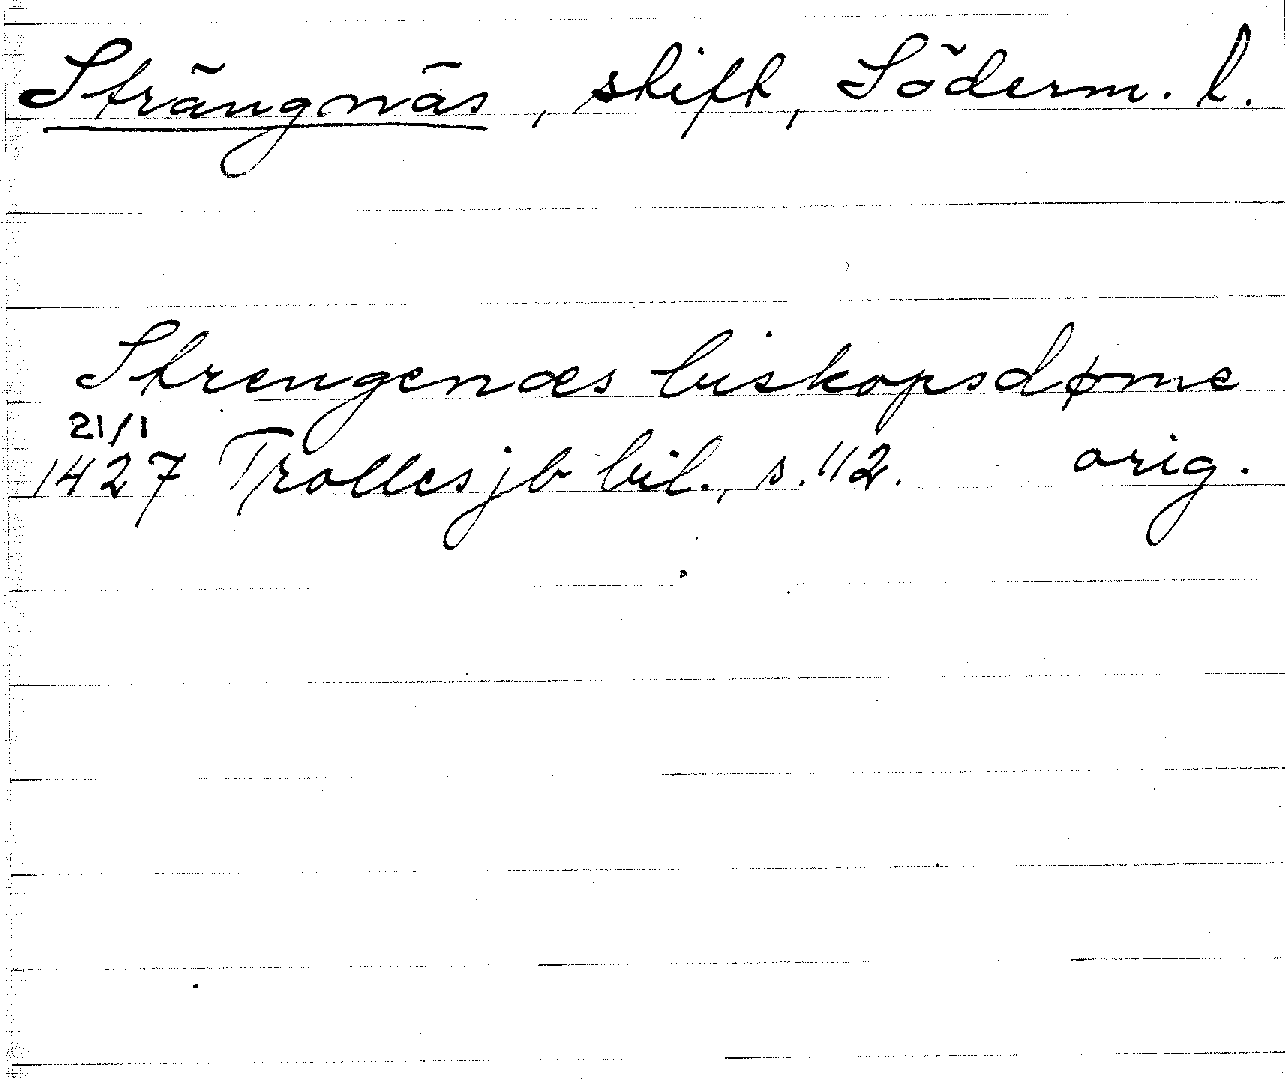 Strängnäs, stift, Söderm. l.
Strengenæs biskopsdøme
21/1
1427 Trolles jb bil., s. 112. orig.